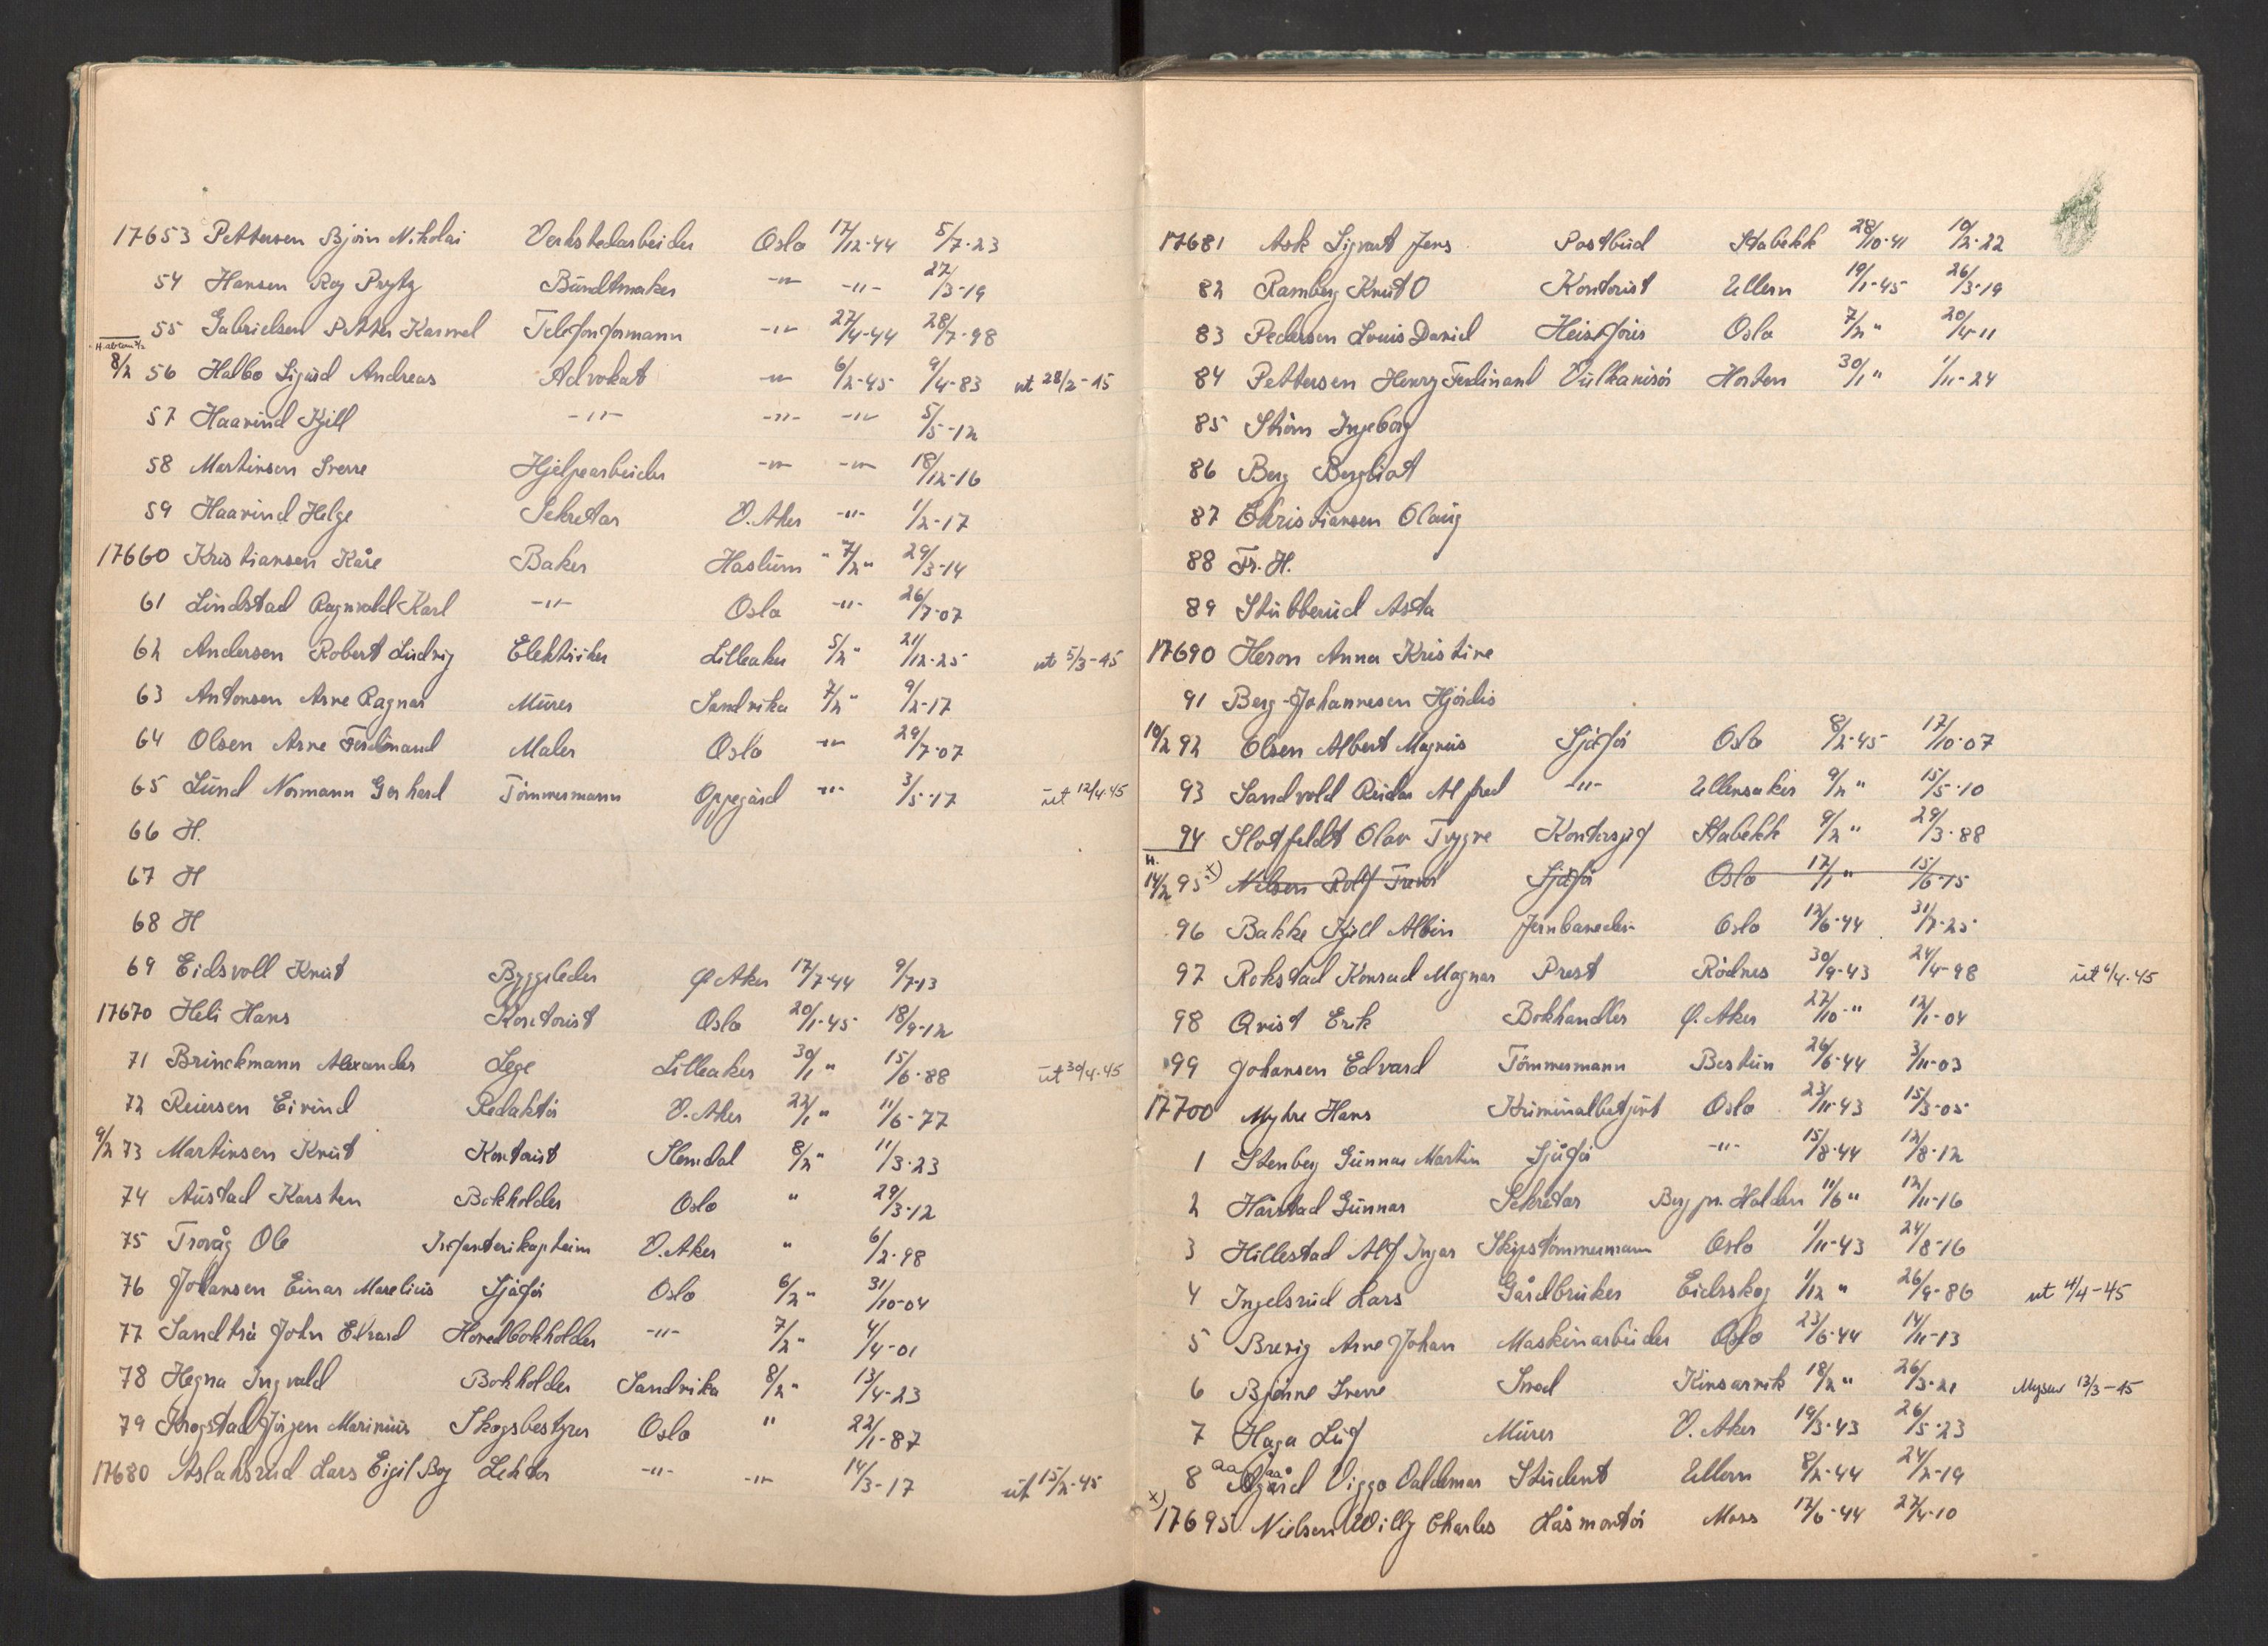 17653 Pettersen Bjørn Nikolai Verkstedarbeider Oslo 17/12-44 5/7-23
54 Hansen Roy Prytz Bundtmaker -"- -"- 27/3-19
55 Gabrielsen Petter Karmel Telefonformann -"- 27/4-44 28/7-98
8/2 56 Halbo Sigurd Andreas Advokat -"- 6/2-45 9/4-83 ut 28/2-45
57 Haavind Kjell -"- -"- -"- 5/5-12
58 Martinsen Sverre Hjelpearbeider -"- -"- 18/12-16
59 Haavind Helge Sekretær V. Aker -"- 1/2-17
17660 Kristiansen Kåre Baker Haslum 7/2 " 29/3-14
61 Lindstad Ragnvald Karl -"- Oslo -"- 26/7-07
62 Andersen Robert Ludvig Elektriker Lilleaker 5/2 " 21/12-25 ut 5/3-45
63 Antonsen Arne Ragnar Murer Sandvika 7/2 " 9/2-17
64 Olsen Arne Ferdinand Maler Oslo -"- 29/7-07
65 Lund Normann Gerhard Tømmermann Oppegård -"- 3/5-17 ut 12/4-45
66 H.
67 H
68 H
69 Eidsvoll Knut Byggeleder Ø. Aker 17/7-44 9/7-13
17670 Heli Hans Kontorist Oslo 20/1-45 18/9-12
71 Brinckmann Alexander Lege Lilleaker 30/1 " 15/6-88 ut 30/4-45
72 Reiersen Eivind Redaktør V. Aker 22/1 " 11/6-77
9/2 73 Martinsen Knut Kontorist Slemdal 8/2 " 11/3-23
74 Austad Karsten Bokholder Oslo " 29/3-12
75 Trovåg Ole Infanterikaptein V. Aker " 6/2-98
76 Johansen Einar Marelius Sjåfør Oslo 6/2 " 31/10-04
77 Sandtrø John Edvard Hovedbokholder -"- 7/2 " 4/4-01
78 Hegna Ingvald Bokholder Sandvika 8/2 " 13/4-23
79 Krogstad Jørgen Marinius Skogsbestyrer Oslo " 22/1-87
17680 Aslaksrud Lars Eigil Boy Lektor -"- -"- 14/3-17 ut 15/2-45
17681 Ask Sigvart Jens Postbud Stabekk 28/10-41 10/2-22
82 Ramberg Knut O Kontorist Ullern 19/1-45 26/3-19
83 Pedersen Louis David Heisefører Oslo 7/2 " 20/4-11
84 Pettersen Henry Ferdinand Vulkanisør Horten 30/1 " 1/11-24
85 Strøm Ingeborg
86 Berg Bergliot
87 Christiansen Olaug
88 Fr. H.
89 Stubberud Asta
17690 Heron Anna Kristine
91 Berg-Johannesen Hjørdis
10/2 92 Olsen Albert Magnus Sjåfør Oslo 8/2-45 17/10-07
93 Sandvold Reidar Alfred -"- Ullensaker 9/2 " 15/5-10
94 Slotfeldt Olav Trygve Kontorsjef Stabekk 9/2 " 29/3-88
H. 14/2 95 x) Nilsen Rolf Trevor Sjåfør Oslo 17/1 " 15/6-15
96 Bakke Kjell Albin Jernbanedir. Oslo 12/6-44 31/7-25
97 Rokstad Konrad Magnar Prest Rødnes 30/9-43 24/4-98 ut 6/4-45
98 Qvist Erik Bokhandler Ø. Aker 27/10-" 12/1-04
99 Johansen Edvard Tømmermann Bestun 26/6-44 3/11-03
17700 Myhre Hans Kriminalbetjent Oslo 23/11-43 15/3-05
1 Stenberg Gunnar Martin Sjåfør -"- 15/8-44 12/8-12
2 Harstad Gunnar Sekretær Berg pr. Halden 11/6 " 12/11-16
3 Hillestad Alf Ingar Skipstømmermann Oslo 1/11-43 24/8-16
4 Ingelsrud Lars Gårdbruker Eidsskog 1/12 " 26/9-86 ut 4/4-45
5 Brevig Arne Johan Maskinarbeider Oslo 23/6-44 14/11-13
6 Bjørne Sverre Smed Kinsarvik 18/2 " 26/3-21 Mysen 12/3-45
7 Haga Leif Murer V. Aker 19/3-43 26/5-23
8 Aagaard Viggo Valdemar Student Ullern 8/2-44 24/2-19
x) 17695 Nielsen Willy Charles Låsmontør Moss 17/6-44 27/4-10